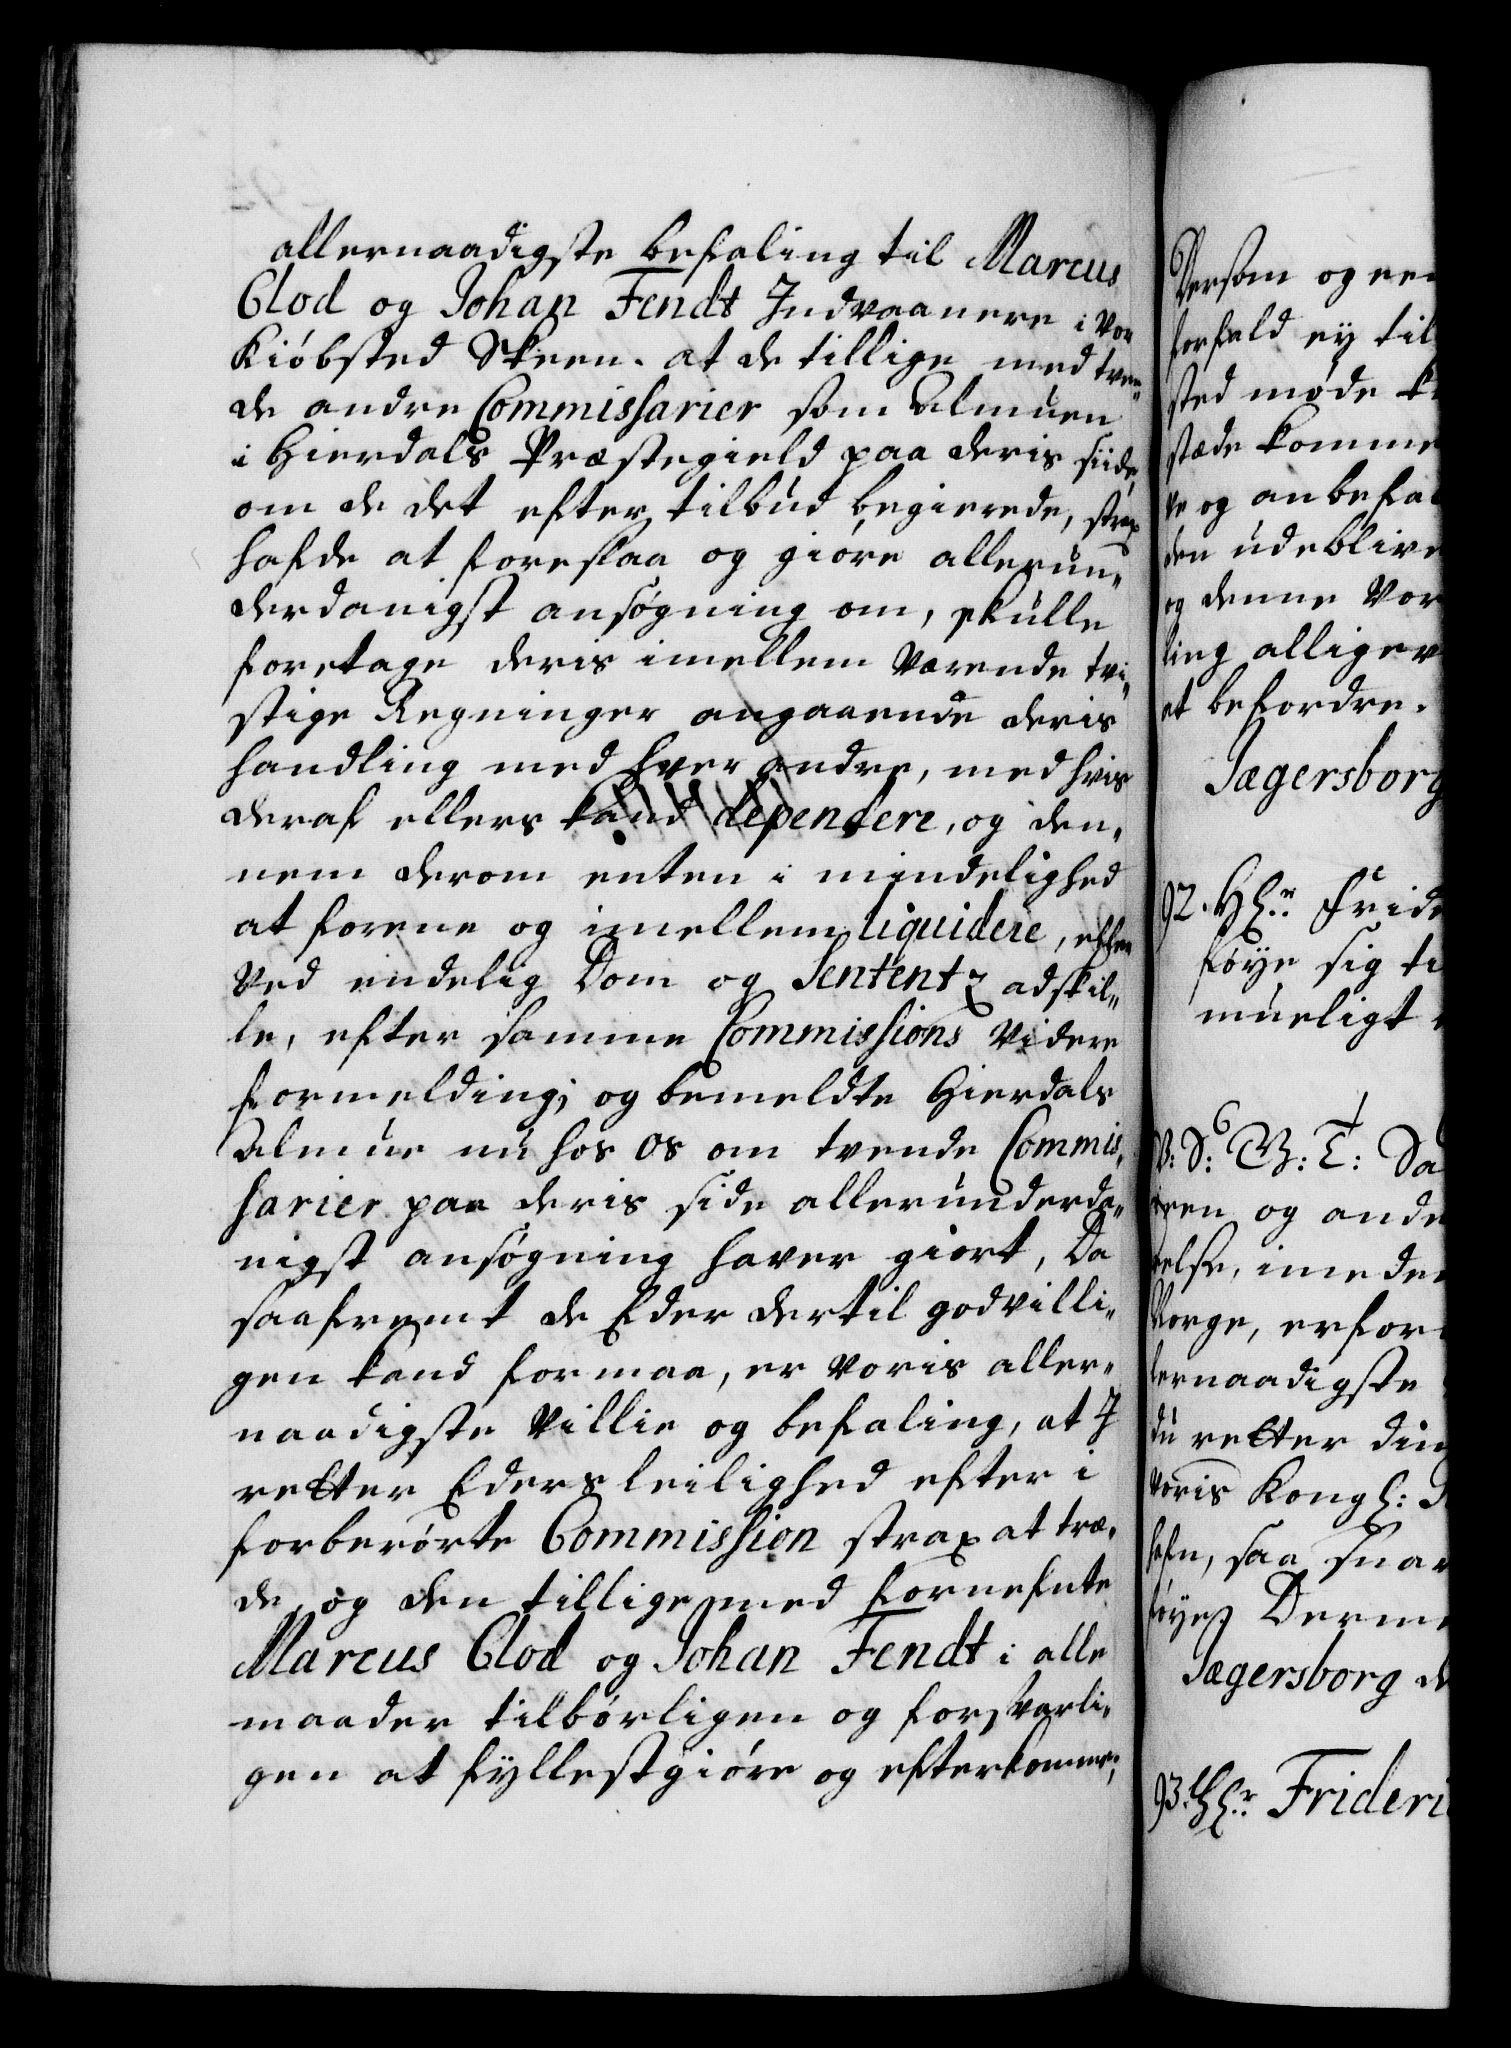 allernaadigste befaling til Marcus
Clod og Johan Fendt Indvaanere i Vor
Kiöbsted Skeen. at de tillige med tven„
de andre Commissarier som Almuen
i Hierdals Præstegield paa deris siide,
om de det efter tilbud begierede, strax
hafde at foreslaa og giöre allerun„
derdanigst ansögning om, skulle
foretage deris imellem værende tvi„
stige Regninger angaaende deris
handling med hver andre, med hvis
deraf ellers kand dependere, og den„
nem derom enten i mindelighed
at forene og imellem liquidere, eller
ved endelig Dom og Sententz adskil„
le, efter samme Commissions videre
formelding; og bemeldte Hierdals
Almue nu hos os om tvende Commis„
sarier paa deris side allerunderda„
nigst ansögning haver giort, Da
saafremt de Eder dertil godvilli„
gen kand formaa, er voris aller„
naadigste Villie og befaling, at I
retter Eders leilighed efter i
forberörte Commission strax at træ„
de, og den tillige med fornefnte
Marcus Clod og Johan Fendt i alle
maader tilbörligen og forsvarli„
gen at fyllestgiöre og efterkomme;
Dersom og een
forfald ey til
sted möde k
stæde komme
ve og anbefal
den udeblive
og denne Vor
ling alligev
at befordre.
Jægersborg
92. H̄r. Frid
föye sig ti
mueligt
V: S: G: V: T: Sa
og ande
else, imeden
Norge, erfor
lernaadigste
du retter din
voris Kongl:
saa snar
föyes Derme
Jægersborg d
93. H̄r. Frideri